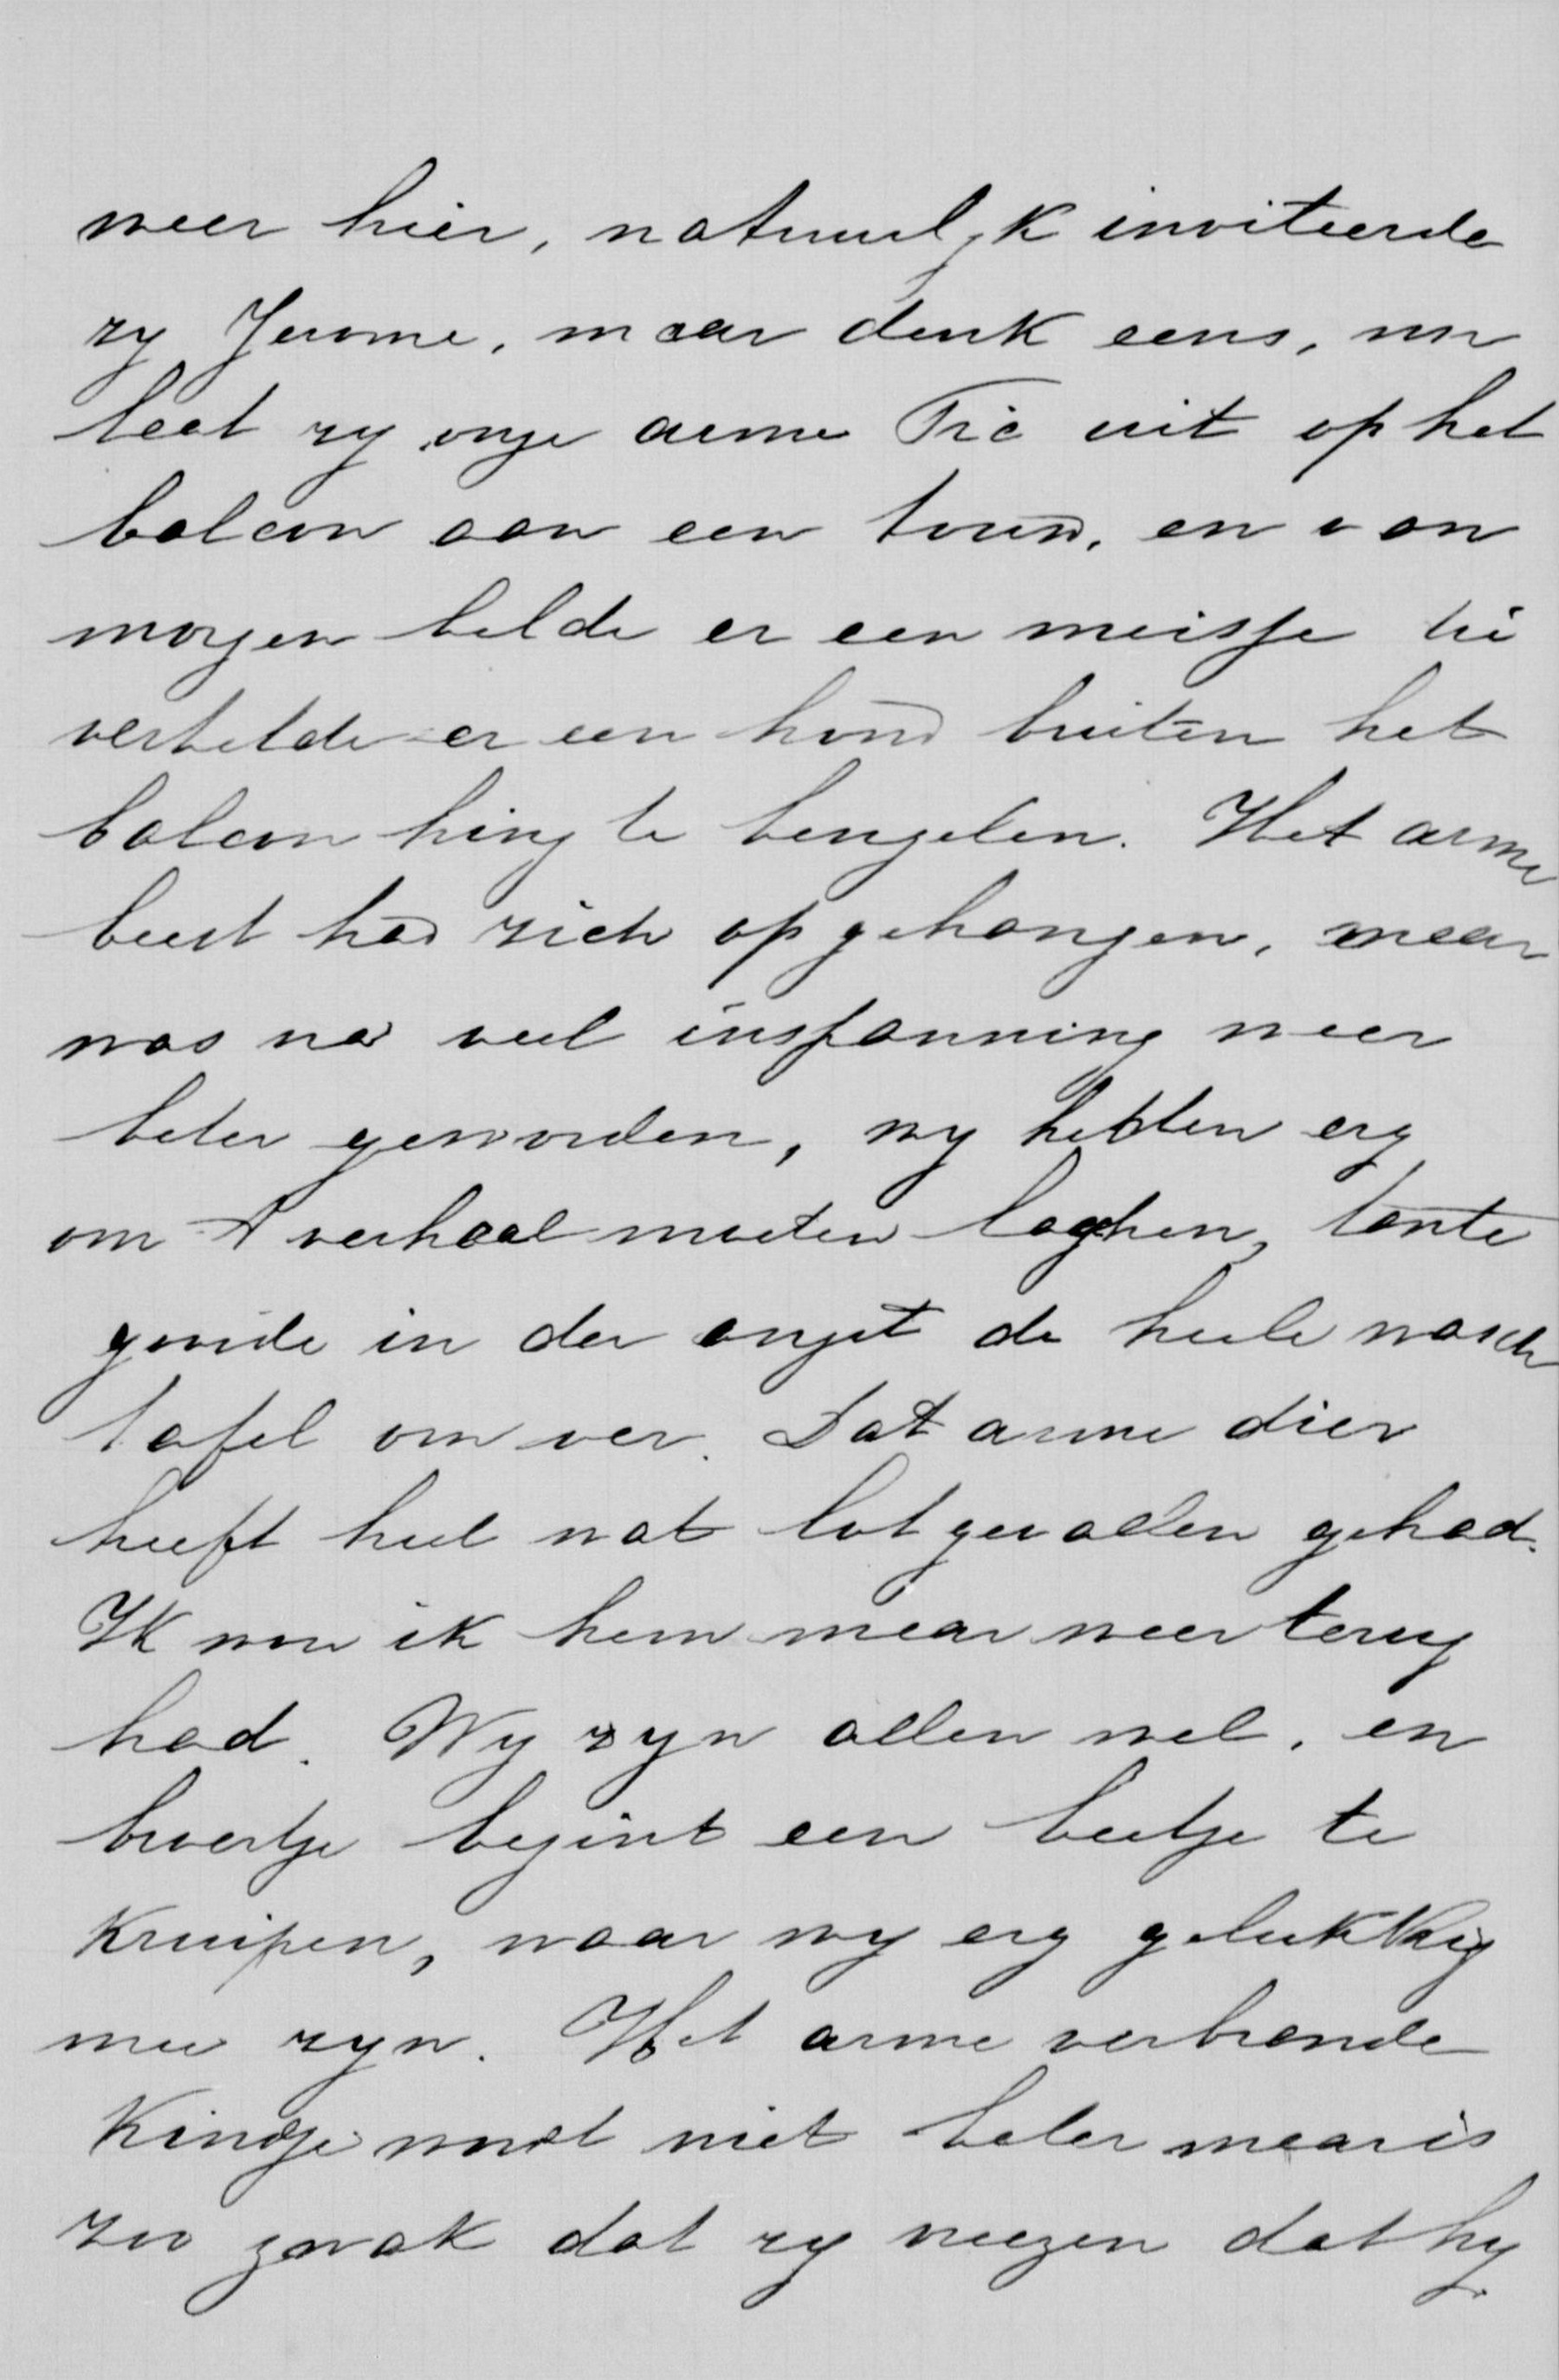 weer hier, natuurlyk inviteerde
zy Jerome, maar denk eens, nu
laat zy onze arme Fic uit op het
balcon aan een touw, en van
morgen belde er een meisje die
vertelde er een hond buiten het
balcon hing te bengelen. Het arme
beest had zich opgehangen, maar
was na veel inspanning weer
beter geworden, wy hebben erg
om 't verhaal moeten laghen, tante
gooide in der angst de heele wasch
tafel om ver. Dat arme dier
heeft heel wat lotgevallen gehad.
Ik wou ik hem maar weer terug
had. Wy zyn allen wel, en
broertje begint een beetje te
Kruipen, waar wy erg gelukkig
mee zyn. Het arme verbrande
Kindje wordt niet beter maar is
zoo zwak dat zy vreezen dat hy